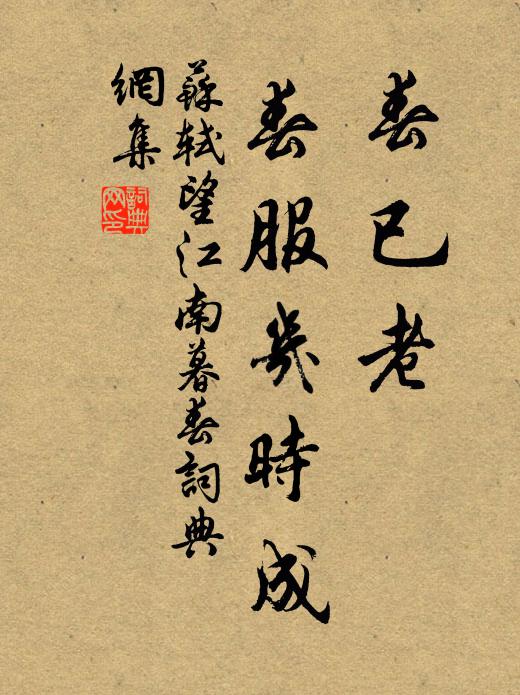 春已老
春服幾時成
蘇軾望江南暮春詞典
網集
詞典
网印